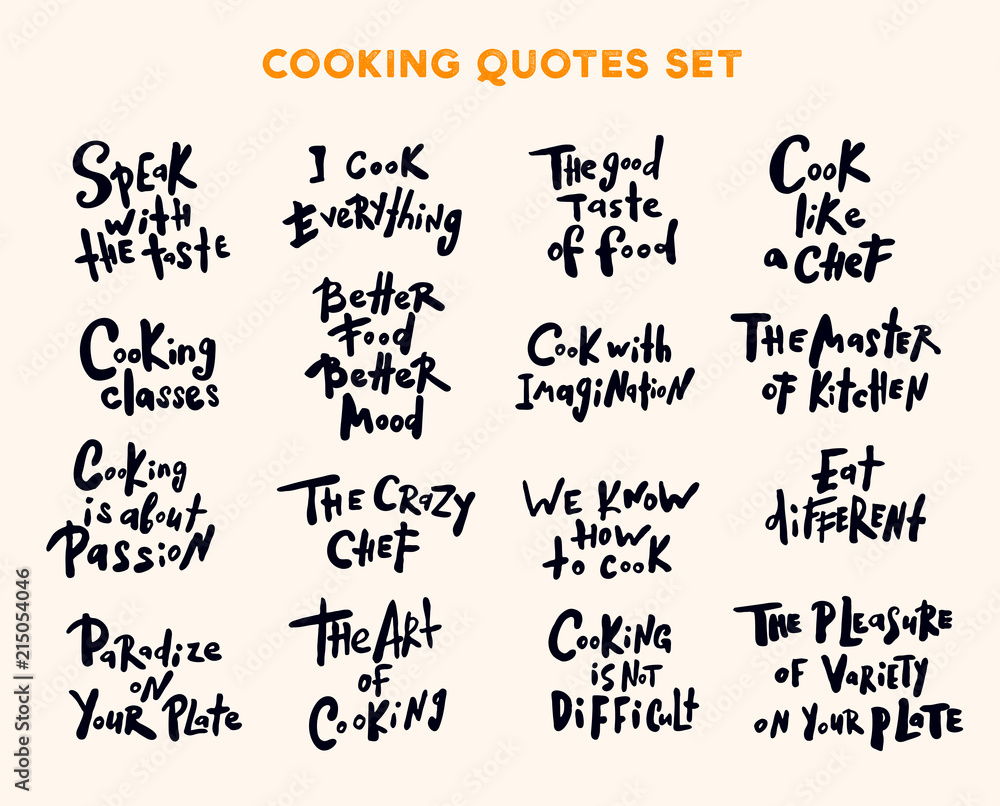 COOKING QUOTES SET
Speak
with
the taste
I cook
Everything
The good
taste
of food
Cook
like
a chef
Cooking
classes
Better
Food
Better
Mood
Cook with
Imagination
The Master
of kitchen
Cooking
is about
Passion
The Crazy
Chef
We know
how
to cook
Eat
different
Paradize
on
Your Plate
The Art
of
Cooking
Cooking
is not
Difficult
The Pleasure
of Variety
on your plate
Adobe Stock | #215054046